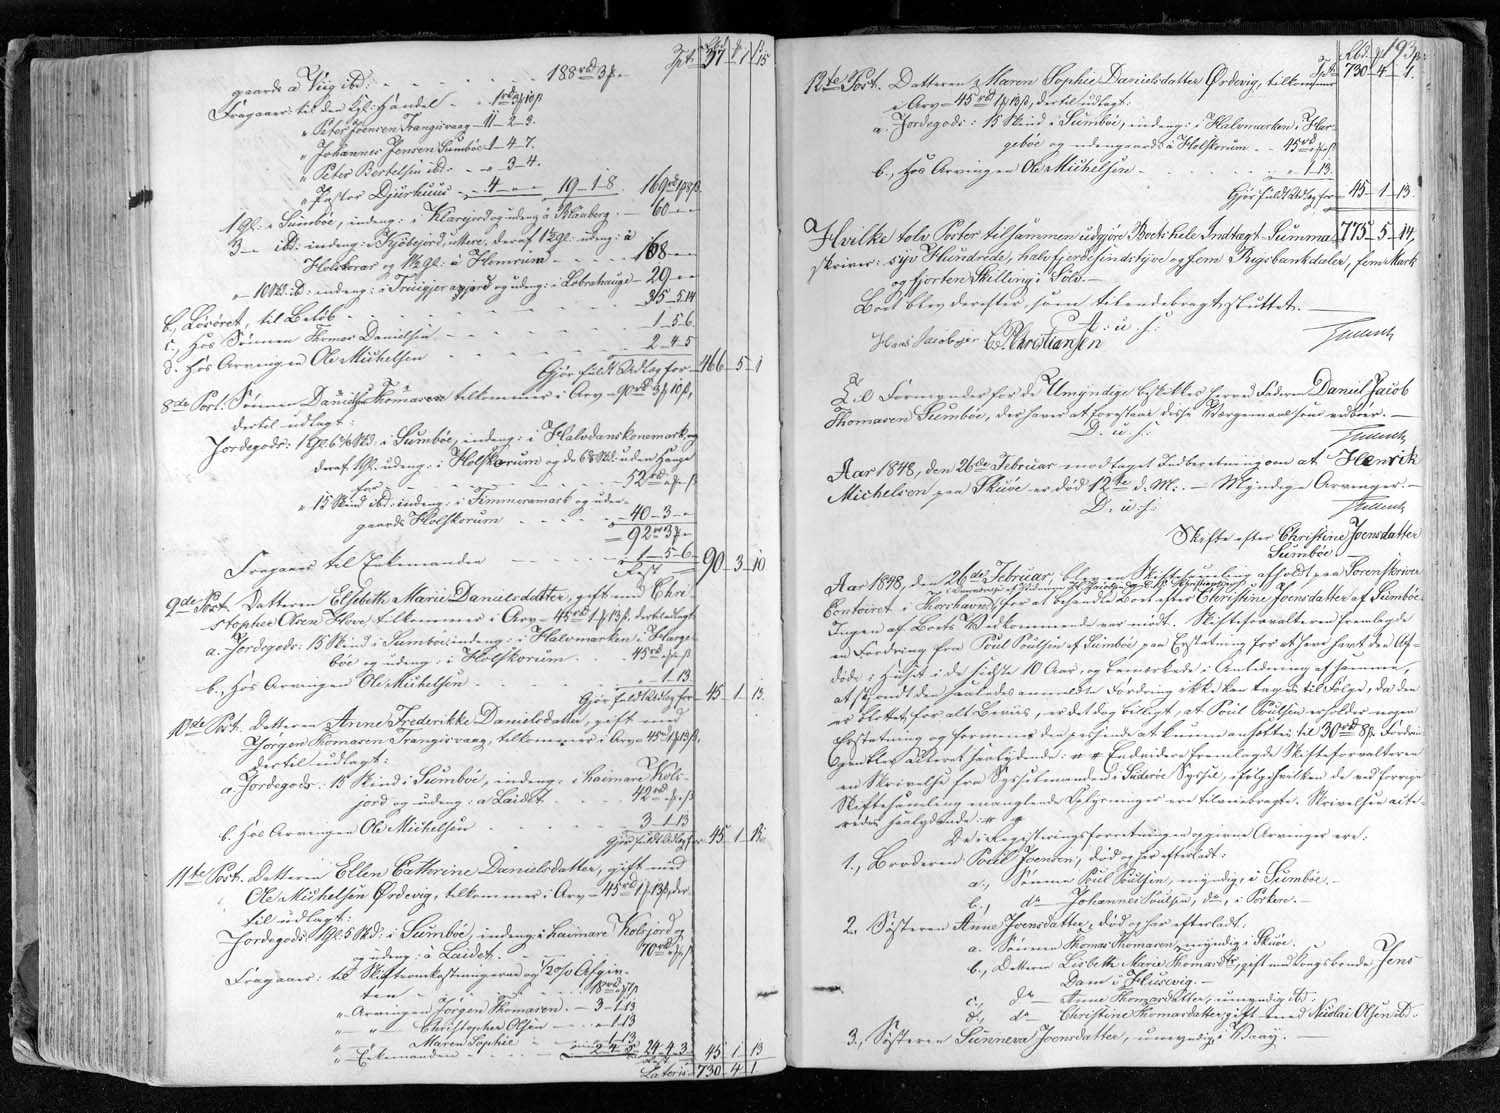 Tpt. 37 1 15
gaards á Viig ibd: - - - - 188 rd 3 ß -
Fragaaer: til den kgl: Handel - - 1 rd 3 ß 10 ß
" Peter Joensen Trangisvaag - 11 - 2 - 3.
" Johannes Jensen Sumböe 1 - 4 - 7.
" Peter Bertelsen ibd: - - " - 3 - 4.
" Pastor Djurhuus - 4 - " - 19 - 1 - 8 169 rd 1 ß 8 ß
1 gl: i Sumböe, indeng: i Klarejord og udeng á Blaaberg. - 60 - " -
3 - ibd: indeng: i Kjöbejord uttere, deraf 1½ gl: udeng: á
og 1½ gl: á Hemrum - - - - 168 - " -
" - 10 Skd: ibd: indeng: i og udeng: i Lobrahauge - 29 - " -
b., Lösöret, til Belöb - - - - 35 - 5 - 14
c., Hos Sönnen Thomas Danielsen - - - - 1 - 5 - 6.
d. Hos Arvingen Ole Michelsen - - - - 2 - 4 - 5
Gjör fuldt Udlæg for - 466 - 5 - 1
8de Post. Sönnen Daniel Thomasen tilkommer i Arv - 90 rd 3 ß 10 ß,
dertil udlagt:
Jordegods: 1 gl. 6 Skd: i Sumböe, indeng: i Halvdanskonemark og
deraf 1 gl. udeng: i Hölskorum og de 6 Skd: uden Hauge
for - - - - 52 rd " ß " ß
" 15 Skind ibd: indeng: i Timmeramark og uden-
gaards Holskorum - - - - 40 - 3 - "
= 92 rd 3 ß "
Fragaaer til Enkemanden - - - 1 - 5 - 6
Rest = 90 - 3 - 10
9de Post. Datteren Elsebeth Marie Danielsdatter, gift med Chri-
stopher Olsen Hove tilkommer i Arv - 45 rd 1 ß 13 ß, dertil udlagt:
a. Jordegods: 15 Skind i Sumböe: indeng: i Halvmarken i Harge-
böe og udeng: i Hölskorum - - 45 rd " ß " ß
b., Hos Arvingen Ole Michelsen - - - " - 1 - 13.
Gjör fuldt Udlæg for - 45 - 1 - 13.
10de Post. Datteren Anne Frederikke Danielsdatter, gift med
Jörgen Thomasen Trangisvaag, tilkommer i Arv - 45 rd 1 ß 13 ß,
dertil udlagt:
a. Jordegods: 15 Skind i Sumböe, indeng: i haimare Kols-
jord og udeng: á Laidet. - - 42 rd " ß " ß
b. Hos Arvingen Ole Michelsen - - - 3 - 1 - 13
Gjör fuldt Udlæg for 45 - 1 - 13.
11te Post. Datteren Ellen Cathrine Danielsdatter, gift med
Ole Michelsen Ördevig, tilkommer i Arv - 45 rd 1 ß 13 ß, der-
til udlagt:
Jordegods: 1 gl. 5 Skd: i Sumböe, indeng: i haimare Kolsjord og
udeng: á Laidet. - - - 70 rd " ß " ß
Fragaaer: til Skifteomkostningerne og 1/2 0/0 Afgif-
ten - - - - 18 rd " ß 7 ß
" - Arvingen Jörgen Thomasen. - 3 - 1 - 13
" - " - Christopher Olsen - " - 1 - 13
" - " - Maren Sophie - " - 1 - 13
" - Enkemanden - - - 2 - 4 - 5 24 - 4 - 3
Rest = 45 1 13
Lateris - 730 4 1
193.
Rbd. ß
Tpt. 730 - 4 - 1.
12te Post. Datteren Maren Sophie Danielsdatter Ördevig, tilkommer
i Arv - 45 rd 1 ß 13 ß, dertil udlagt:
a. Jordegods: 15 Skind i Sumböe, indeng: i Halvmarken i Har-
geböe og udengaards á Hölskorum - - 45 rd " ß " ß
b., Hos Arvingen Ole Michelsen - - - - " 1 - 13.
Gjör fuldt Udlæg for - 45 - 1 - 13.
Hvilke tolv Poster tilsammen udgjöre Boets hele Indtægt-Summa 775 - 5 - 14,
skriver: syv Hundrede, halvfjerdesindstyve og fem Rigsbankdaler, fem Mark
og fjorten Skilling i Sölv. -
Boet blev derefter, som tilendebragt, sluttet. -
D: u: s:
Hans Jacobsen C. P. Christiansen
Til Formynder for de Umyndige beskikkes herved Faderen Daniel Jacob
Thomasen Sumböe, der haver at forestaae disse Værgemaal som vedbör. -
D. u. s:
Aar 1848, den 26de Februar modtaget Indberetning om at Henrik
Michelsen paa Skuöe er död 12te d. M. - Myndige Arvinger. -
D. u: s:
Skifte efter Christine Joensdatter
Sumböe -
Aar 1848, den 26de Februar, blev en Skiftesamling afholdt paa Sorenskriver
Contoiret i Thorshavn for at behandle Boet efter Christine Joensdatter af Sumböe.
Ingen af Boets Vedkommende var mödt. Skifteforvalteren fremlagde
en Fordring fra Poul Poulsen af Sumböe paa Erstatning for at have havt den Af-
döde i Huset i de sidste 10 Aar, og bemærkede i Anledning af samme,
at skjöndt den saaledes anmeldte Fordring ikke kan tages til Fölge, da den
er blottet for alt Beviis, er det dog billigt, at Poul Poulsen erholder nogen
Erstatning og formenes den passende at kunne ansættes til 30 rd 8 ß. Fordrin-
gen blev acteret saalydende: # # Endvidere fremlagde Skifteforvalteren
en Skrivelse fra Sysselmanden i Suderöe Syssel, ifölge hvilken de ved forrige
Skiftesamling manglende Oplysninger ere tilveiebragte. Skrivelsen acte-
redes saalydende: # #
De i Registreringsforretningen opgivne Arvinger ere:
1., Broderen Poul Joensen, död og har efterladt:
a., Sönnen Poul Poulsen, myndig, i Sumböe. -
b., do - Johannes Poulsen, do, i Porkere. -
2. Sösteren Anne Joensdatter, död og har efterladt:
a. Sönnen Thomas Thomasen, myndig i Skuöe.
b., Datteren Lisbeth Marie Thomasdtr, gift med Kongsbonde Jens
Dam i Husevig. -
c., do - Anne Thomasdatter, umyndig ibd.
d., do - Christine Thomasdatter, gift med Nicolai Olsen ibd.
3., Sösteren Sunneva Joensdatter, umyndig i Vaag. -